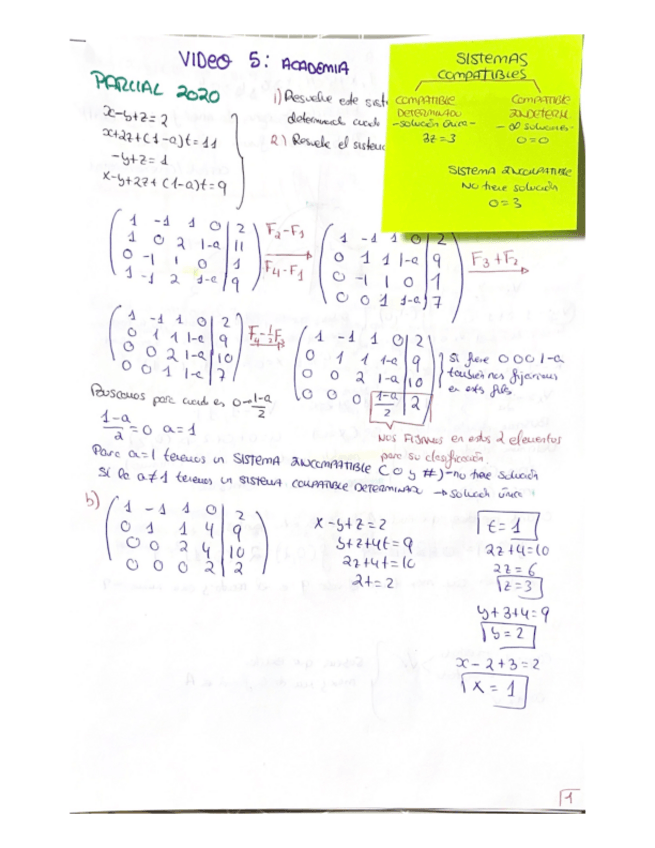 VIDEO 5: ACADEMIA
PARCIAL 2020
x-y+z=2
x+2z+(1-a)t=11
-y+z=1
x-y+2z+(1-a)t=9
1) Resuelve este sist
determinar cuando
2) Resuelve el sistema
SISTEMAS
COMPATIBLES
COMPATIBLE
DETERMINADO
-solución única-
3z=3
COMPATIBLE
INDETERM.
-∞ soluciones-
0=0
SISTEMA INCOMPATIBLE
No tiene solución
0=3
1 -1 1 0 | 2
1 0 2 1-a | 11
0 -1 1 0 | 1
1 -1 2 1-a | 9
F2-F1
F4-F1
1 -1 1 0 | 2
0 1 1 1-a | 9
0 -1 1 0 | 1
0 0 1 1-a | 7
F3+F2
1 -1 1 0 | 2
0 1 1 1-a | 9
0 0 2 1-a | 10
0 0 1 1-a | 7
F4-1/2F3
1 -1 1 0 | 2
0 1 1 1-a | 9
0 0 2 1-a | 10
0 0 0 1-a/2 | 2
Si fuere 0 0 0 1-a
también nos fijaríamos
en esta fila
Buscamos para cuando es 0→1-a/2
1-a/2=0 a=1
NOS FIJAMOS en estos 2 elementos
para su clasificación.
Para a=1 tenemos un SISTEMA INCOMPATIBLE (0 y #)-no tiene solución
Si la a≠1 tenemos un SISTEMA COMPATIBLE DETERMINADO → solución única
b)
1 -1 1 0 | 2
0 1 1 4 | 9
0 0 2 4 | 10
0 0 0 2 | 2
x-y+z=2
y+z+4t=9
2z+4t=10
2t=2
t=1
2z+4=10
2z=6
z=3
y+3+4=9
y=2
x-2+3=2
x=1
1